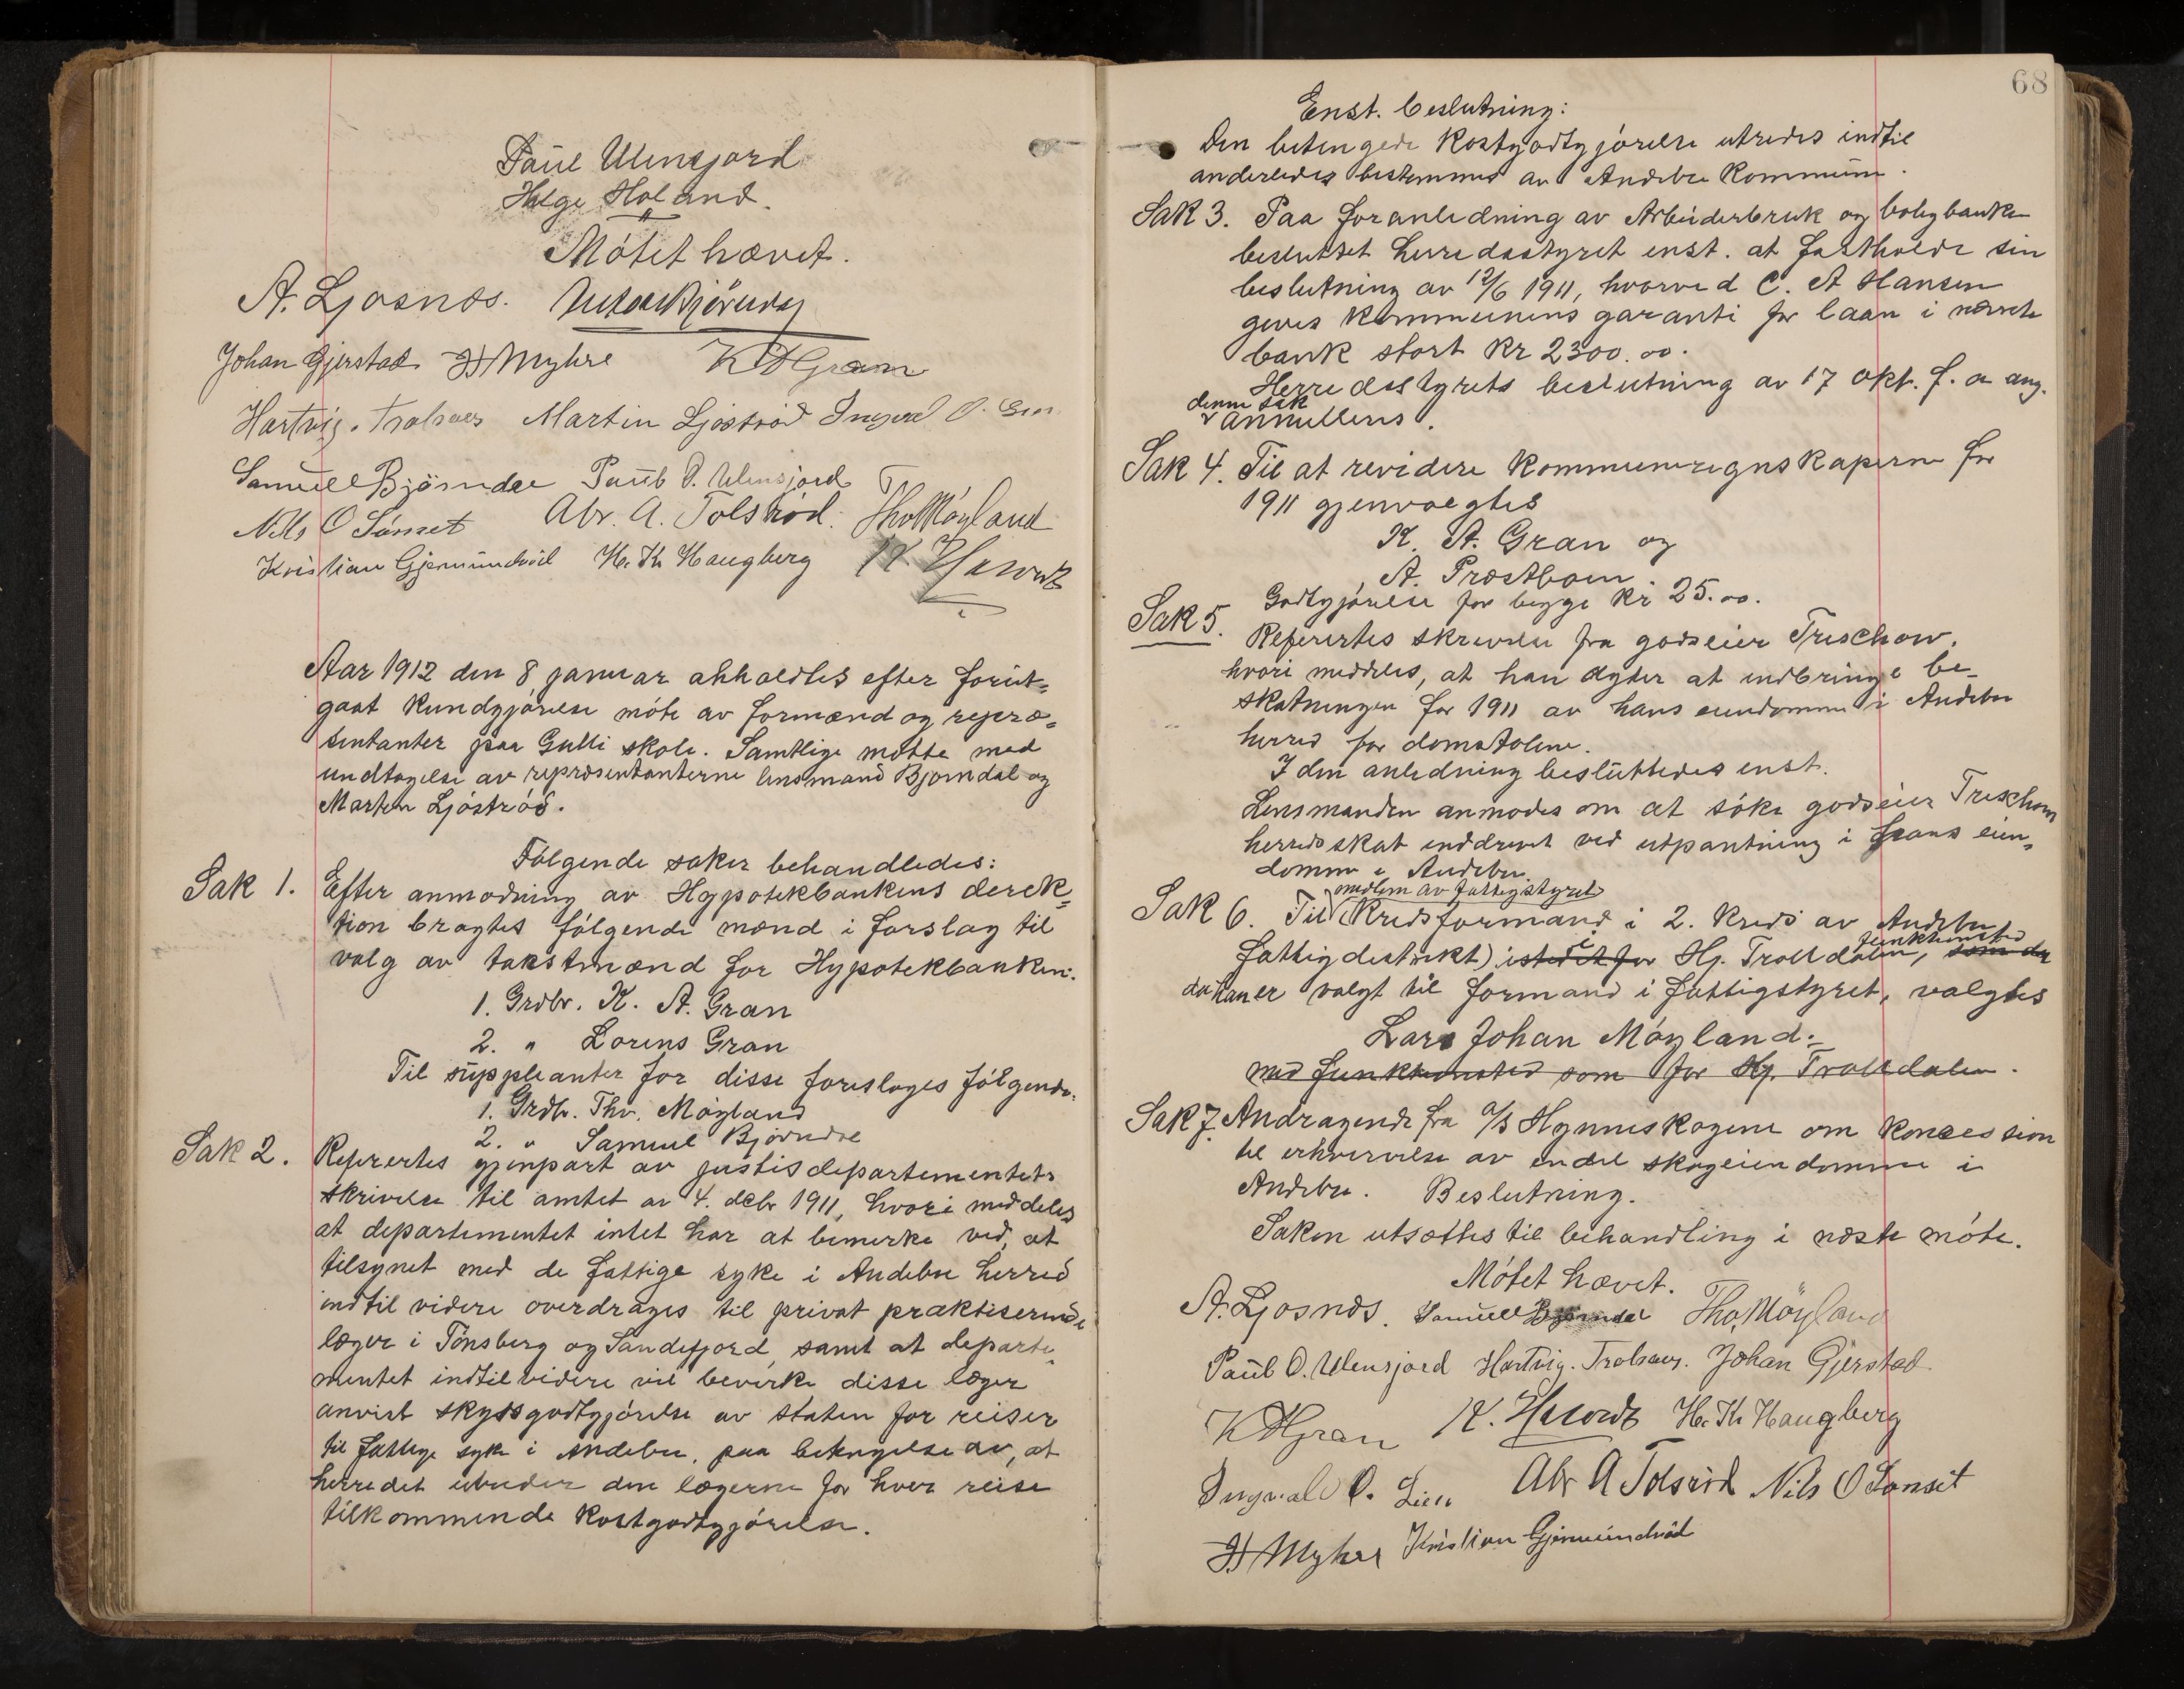 Paul Ulensjord
Helge Holand.
Mótet hævet.
A. Ljosnæs.
Johan Gjerstad H Myhre K A Gran
Hartvig. Trolsaas Martin Ljöströd Ingval O.
Samuel Bjórndal Paul O. Ulensjord
Nils O Sónset Abr. A. Tolsród. Tho Móyland
Kristian Gjermundród H. Kr Haugberg
Aar 1912 den 8 januar ahholdtes efter forut-
gaat kundgjórelse móte av formænd og repræ-
sentanter paa Gulli skole. Samtlige mótte med
undtagelse av repræsentanterne lensmand Bjórndal og
Martin Ljóströd.
Fólgende saker behandledes:
Sak 1. Efter anmodning av Hypotekbankens derek-
tion bragtes fólgende mænd i forslag til
valg av takstmænd for Hypotekbanken:
1. Grdbr. K. A. Gran
2. " Lorens Gran
Til suppleanter for disse foresloges fólgende:
1. Grdbr. Thv. Móyland
2. " Samuel Bjórndal
Sak 2. Refertes gjenpart av justisdepartementets
skrivelse til amtet av 4. debr 1911, hvori meddeles
at departementet intet har at bemerke ved, at
tilsynet med de fattige syke i Andebu herred
indtil videre overdrages til privat praktiserende
læger i Tónsberg og Sandefjord, samt at departe-
mentet indtil videre vil bevirke disse læger
anvist skyssgodtgjórelse av staten for reiser
til fattige syke i Andebu, paa betingelse av, at
herredet utreder den lægerne for hver reise
tilkommende kostgodtgjórelse.
68
Enst. beslutning:
Den betingede kostgodtgjórelse utredes indtil
anderledes bestemmes av Andebu kommune.
Sak 3. Paa foranledning av Arbeiderbruk og boligbanken
besluttet herredsstyret enst. at fastholde sin
beslutning av 12/6 1911, hvorved C. A Hansen
gives kommunens garanti for laan i nævnte
bank stort kr 2300.00.
Herredsstyrets beslutning av 17 okt. f. a ang.
denne sak
annulleres.
Sak 4. Til at revidere kommuneregnskaperne for
1911 gjenvalgtes
K. A. Gran og
A. Præstbóen.
Godtgjórelse for begge kr 25.00.
Sak 5. Refertes skrivelse fra godseier Treschow,
hvori meddeles, at han agter at indbringe be-
skatningen for 1911 av hans eiendomme i Andebu
herred for domstolene.
I den anledning besluttedes enst.
Lensmanden anmodes om at sóke godseier Treschows
herredsskat inddrevet ved utpantning i hans eien-
domme i Andebu.
medlem av fattigstyret
Sak 6. Til (Kredsformand i 2. kreds av Andebu
funktionstid
fattigdistrikt) istedet for Hj. Trolldalen, som da
da han er valgt til formand i fattigstyret, valgtes
Lars Johan Móyland:
med funktionstid som for Hj. Trolldalen.
Sak 7. Andragende fra A/S Hynneskogene om koncession
til erhvervelse av endel skogeiendomme i
Andebu. Beslutning.
Saken utsættes til behandling i næste móte.
Mótet hævet.
A. Ljosnæs. Samuel Bjórndal Tho. Möyland
Paul O. Ulensjord Hartvig. Trolsaas. Johan Gjerstad.
K A Gran H. Kr Haugberg
Ingvald O. Lien Abr A Tolsród Nils O Sónset
H Myhre Kristian Gjermundród